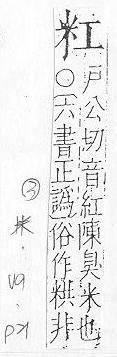 粠
戸公切音紅陳臭米也
○六書正譌俗作粠非
③ 米.va.p21